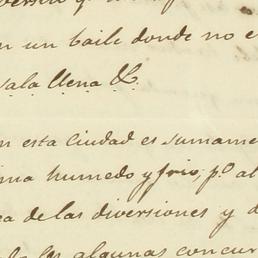 n un baile donde no e
sala llena &.
n esta Ciudad es sumame
ma humedo y frio, p.o al
ea de las diversiones y d
algunas concur